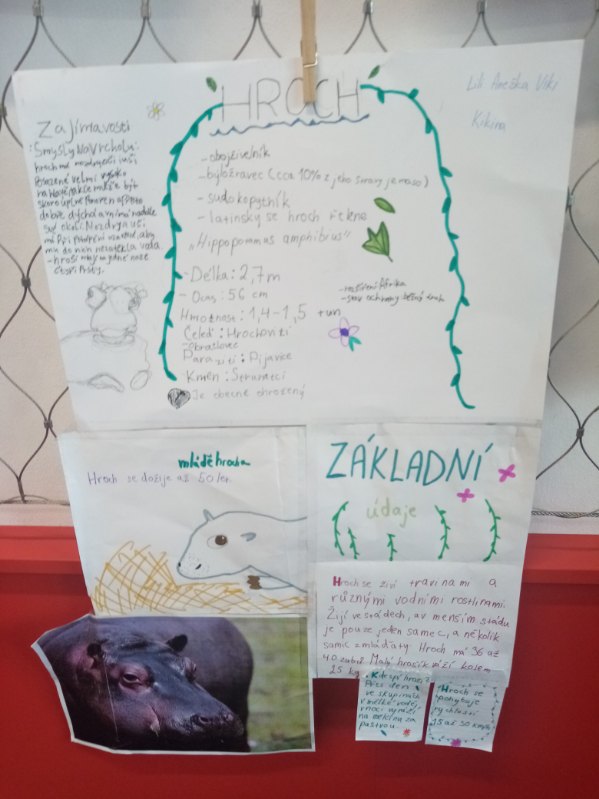 HROCH
Lili Anežka Viki
Kikina
Zajímavosti
Smysly na vrcholu:
hroch má nozdry, oči i uši
posazené velmi vysoko
skoro úplně ponořen a přesto
dobře dýchá a vnímá nadále
své okolí. Nozdry a uši
má při potopení uzavřené, aby
mu do nich nenatekla voda
-hroši mají na jedné noze
čtyři prsty.
-obojživelník
-býložravec (cca 10% z jeho stravy je maso)
-sudokopytník
-latinsky se hroch řekne
„Hippopotamus amphibius"
-Délka: 2,7m
-Ocas: 56 cm
Hmotnost: 1,4-1,5 tun
Čeleď: Hrochovití
-Obratlovec
Paraziti: Pijavice
Kmen: Strunatci
Je obecně ohrožený
-rozšíření Afrika
mládě hrocha
Hroch se dožije až 50 let.
ZÁKLADNÍ
údaje
Hroch se živí travinami a
různými vodními rostlinami.
Žijí ve stádech, a v menším stádu
je pouze jeden samec, a několik
samic z mláďaty Hroch má 36 až
40 zubů. Malý hrošík váží kolem
25 kg.
Kde spí hroch?
Přes den
ve skupinách
v mělké vodě,
v noci vyráží
na mělčinu za
pastvou.
Hroch se
pohybuje
rychlostí
25 až 30 km/h